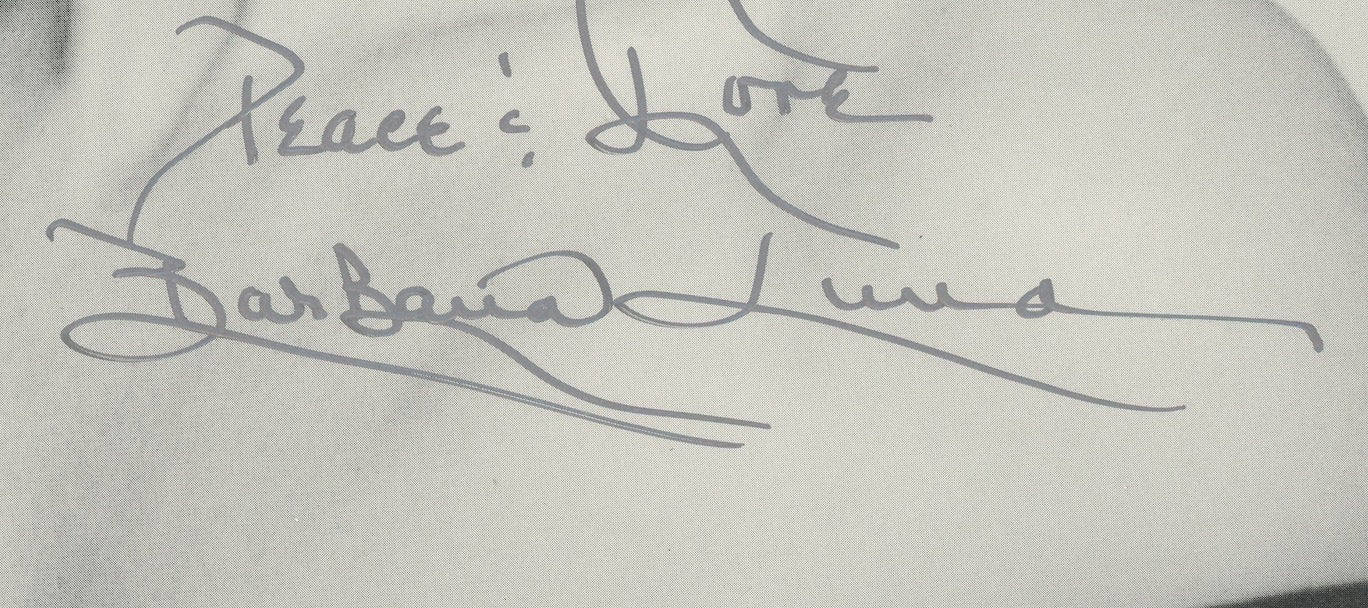 Peace & Love
BarBara Luna